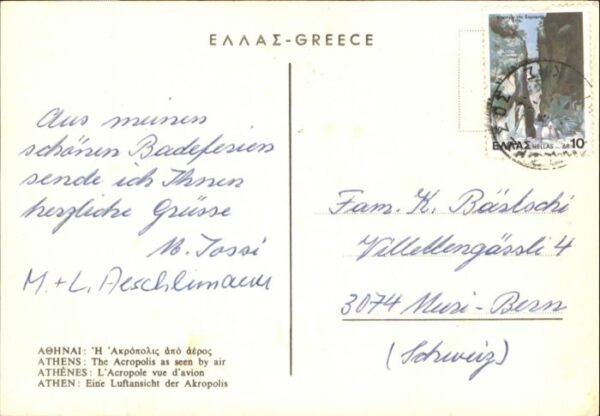 ΕΛΛΑΣ-GREECE
Aus meinen
schönen Badeferien
sende ich Ihnen
herzliche Grüsse
M. Jossi
M. + L. Aeschlimann
ΑΘΗΝΑΙ: Ἡ Ἀκρόπολις ἀπὸ ἀέρος
ATHENS: The Acropolis as seen by air
ATHÈNES: L'Acropole vue d'avion
ATHEN: Eine Luftansicht der Akropolis
ΕΛΛΑΣ HELLAS ΔΡ 10
Fam. K. Bästschi
Villettengässli 4
3074 Muri-Bern
(Schweiz)